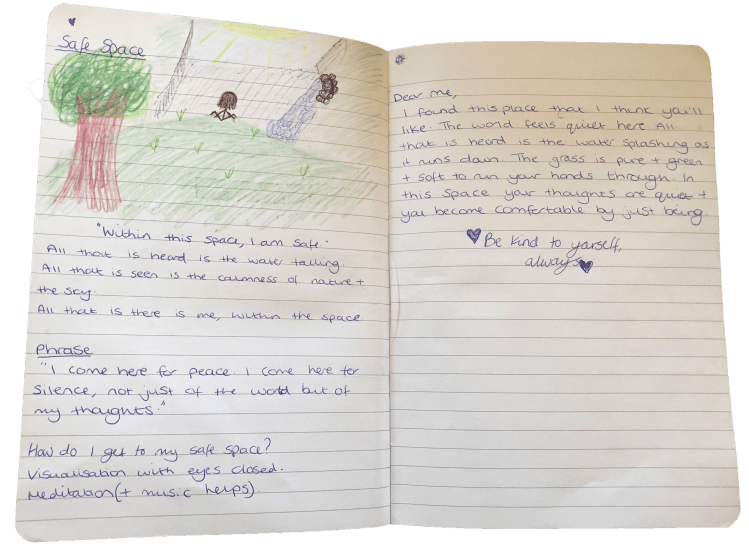 Safe Space
"Within this space, I am safe."
All that is heard is the water falling.
All that is seen is the calmness of nature +
the sky.
All that is there is me, within the space
Phrase
"I come here for peace. I come here for
silence, not just of the world but of
my thoughts."
How do I get to my safe space?
Visualisation with eyes closed.
Meditation (+ music helps)
Dear me,
I found this place that I think you'll
like. The world feels quiet here. All
that is heard is the water splashing as
it runs down. The grass is pure + green
+ soft to run your hands through. In
this space your thoughts are quiet +
you become comfortable by just being.
Be kind to yourself,
always